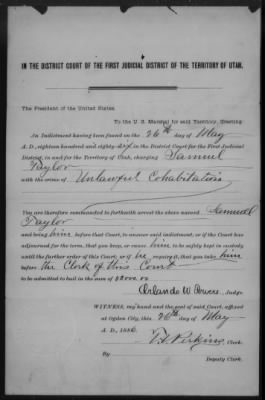 IN THE DISTRICT COURT OF THE FIRST JUDICIAL DISTRICT OF THE TERRITORY OF UTAH.
The President of the United States
To the U. S. Marshal for said Territory, Greeting:
An Indictment having been found on the 26th day of May
A. D., eighteen hundred and eighty-six in the District Court for the First Judicial
District, in and for the Territory of Utah, charging Samuel
Taylor
with the crime of Unlawful Cohabitation
You are therefore commanded to forthwith arrest the above named Samuel
Taylor
and bring him before that Court, to answer said indictment, or if the Court has
adjourned for the term, that you keep, or move him to be safely kept in custody
until the further order of this Court; or if he require it, that you take him
before the Clerk of this Court
to be admitted to bail in the sum of
Orlando W. Powers Judge.
WITNESS, my hand and the seal of said Court, affixed
at Ogden City, this 26th day of May
A. D., 1886.
Perkins Clerk.
By
Deputy Clerk.